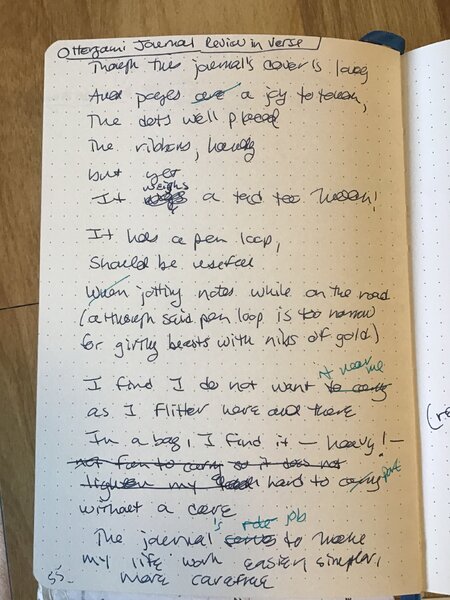 Otterzami Journal Review in Verse
Though this journal's cover is lovely
And pages are a joy to touch,
The dots well placed
The ribbons, handy
but yet
weighs
It a tad too much!
It has a pen loop,
Should be useful
When jotting notes while on the road
(although said pen loop is too narrow
for girthy beasts with nibs of gold)
it near me
I find I do not want to carry
as I flitter here and there
In a bag, I find it – heavy! –
not fun to carry so it does not
lighten my hard to carry port
without a care
's role job
The journal serves to make
my life work easier, simpler,
more carefree
55
(re